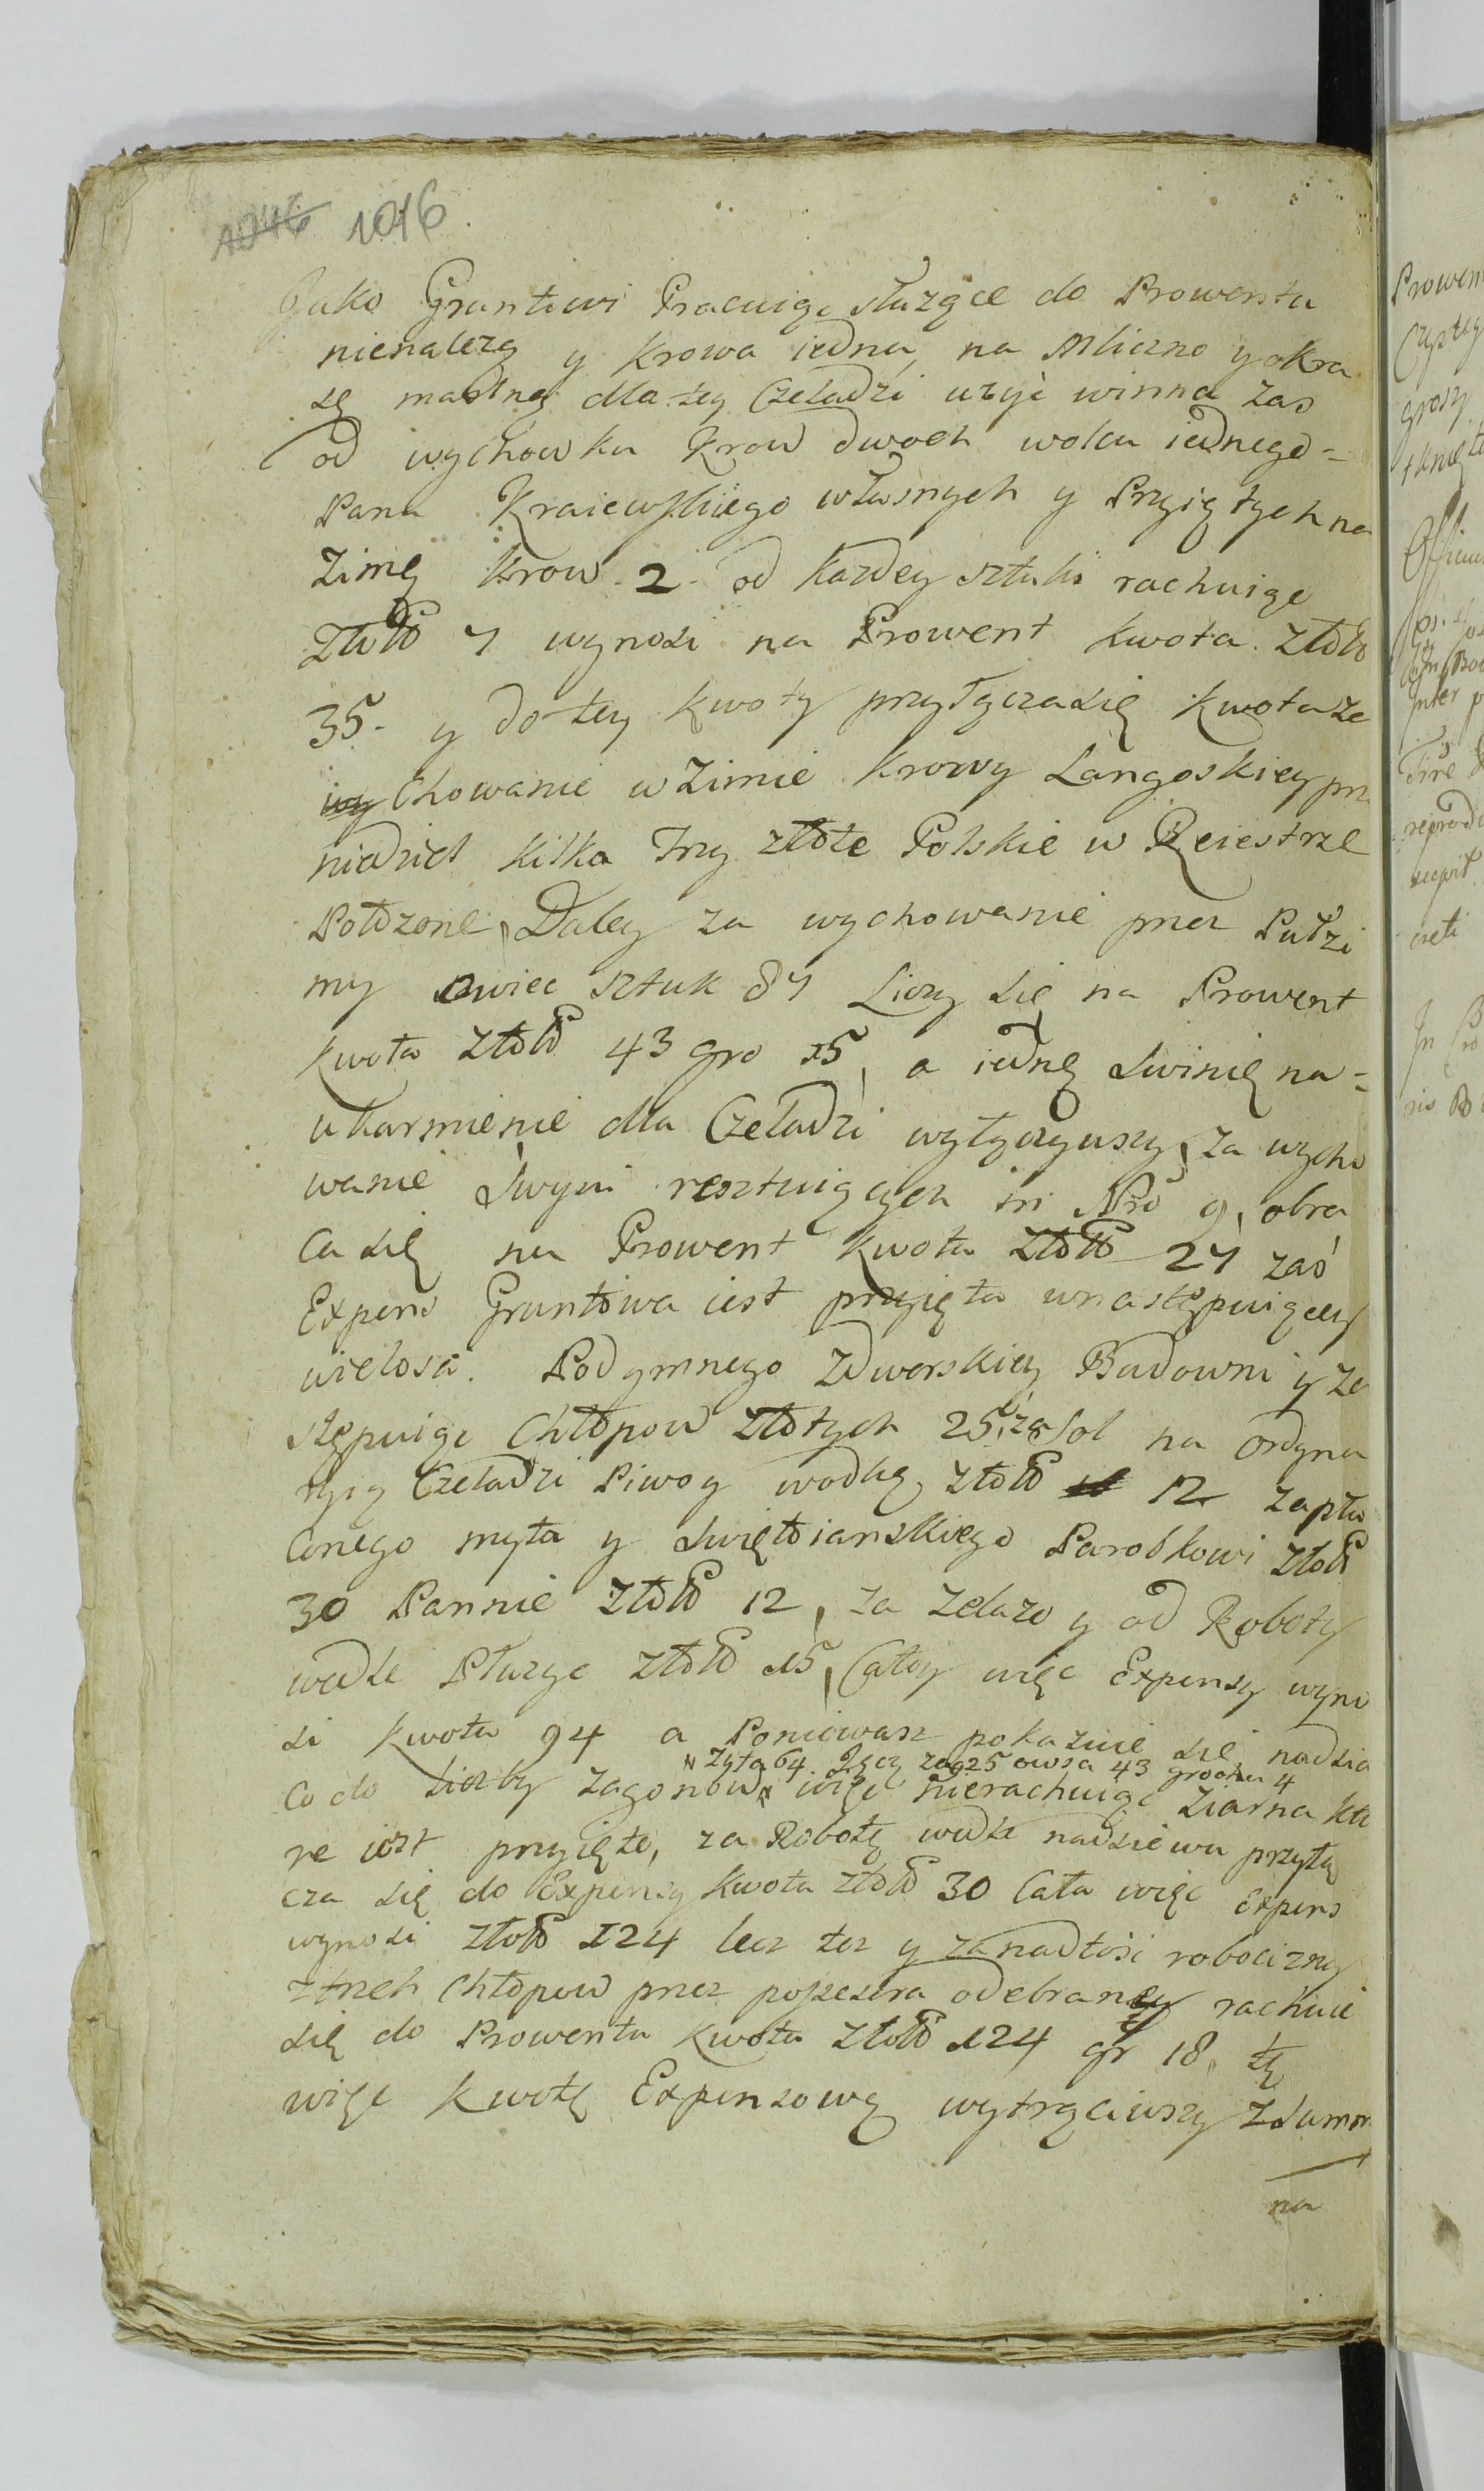 1046 1046
Jako Gruntowi Pracuiąc służące do Prowentu
nienalezą y Krowa iedna, na Mliczno y okra
sę maślną dla tey Czeladzi użyć winna zas
od wychowku Krow dwoch wołu iednego =
Pana Kraiewskiego własnych y Przyiętych na
Zimę krow 2. od każdey sztuki rachuiąc
Złotł 7 wynosi na Prowent kwota. złotł
35. y do tey kwoty przyłączasię kwota ze
wy chowanie w Zimie krowy Langoskiey prz
niedziel kilka Trzy złote Polskie w Reiestrze
Położone, Daley za wychowanie przez Pułzi
my owiec sztuk 87 Liczy się na Prowent
kwota złotł 43 gro 15, a iednę swinię na =
ukarmienie dla Czeladzi wyłączywszy, za wycho
wanie Swyni resztuiących in Nro 9, obra
ca się na Prowent kwota złotł 27 zaś
Expens Gruntowa iest przyięta wnastępuiącey
wielosci. Podymnego Zdworskiey Budowni y za
stępuiąc Chłopow złotych 25, za sol na ordyna
ryią Czeladzi Piwo y wodkę złotł 12 zapła
conego myta y Swiętoianskiego Parobkowi złotł
30 Pannie złotł 12, za Zelazo y od Roboty
wedle Płuzyc złotł 15, Cały więc Expensy wyno
si kwota 94 a Poniewasz pokazuie się nadsia
Zyta 64 Jęcz zag 25 owsa 43 grochu 4
Co do liczby zagonow więc nierachuiąc Ziarna kto
re iest przyięte, za Robotę wedle nadsiewu przyłą
cza się do Expensy kwota złotł 30 Cała więc Expens
wynosi złotł 124 lecz tez y za nadtosc robocizny
ztrzech Chłopow przez possesera odebraney rachuie
się do Prowentu kwota złotł 124 gr 18, tę
więc kwotę Expensową wytrąciwszy zSumm
na